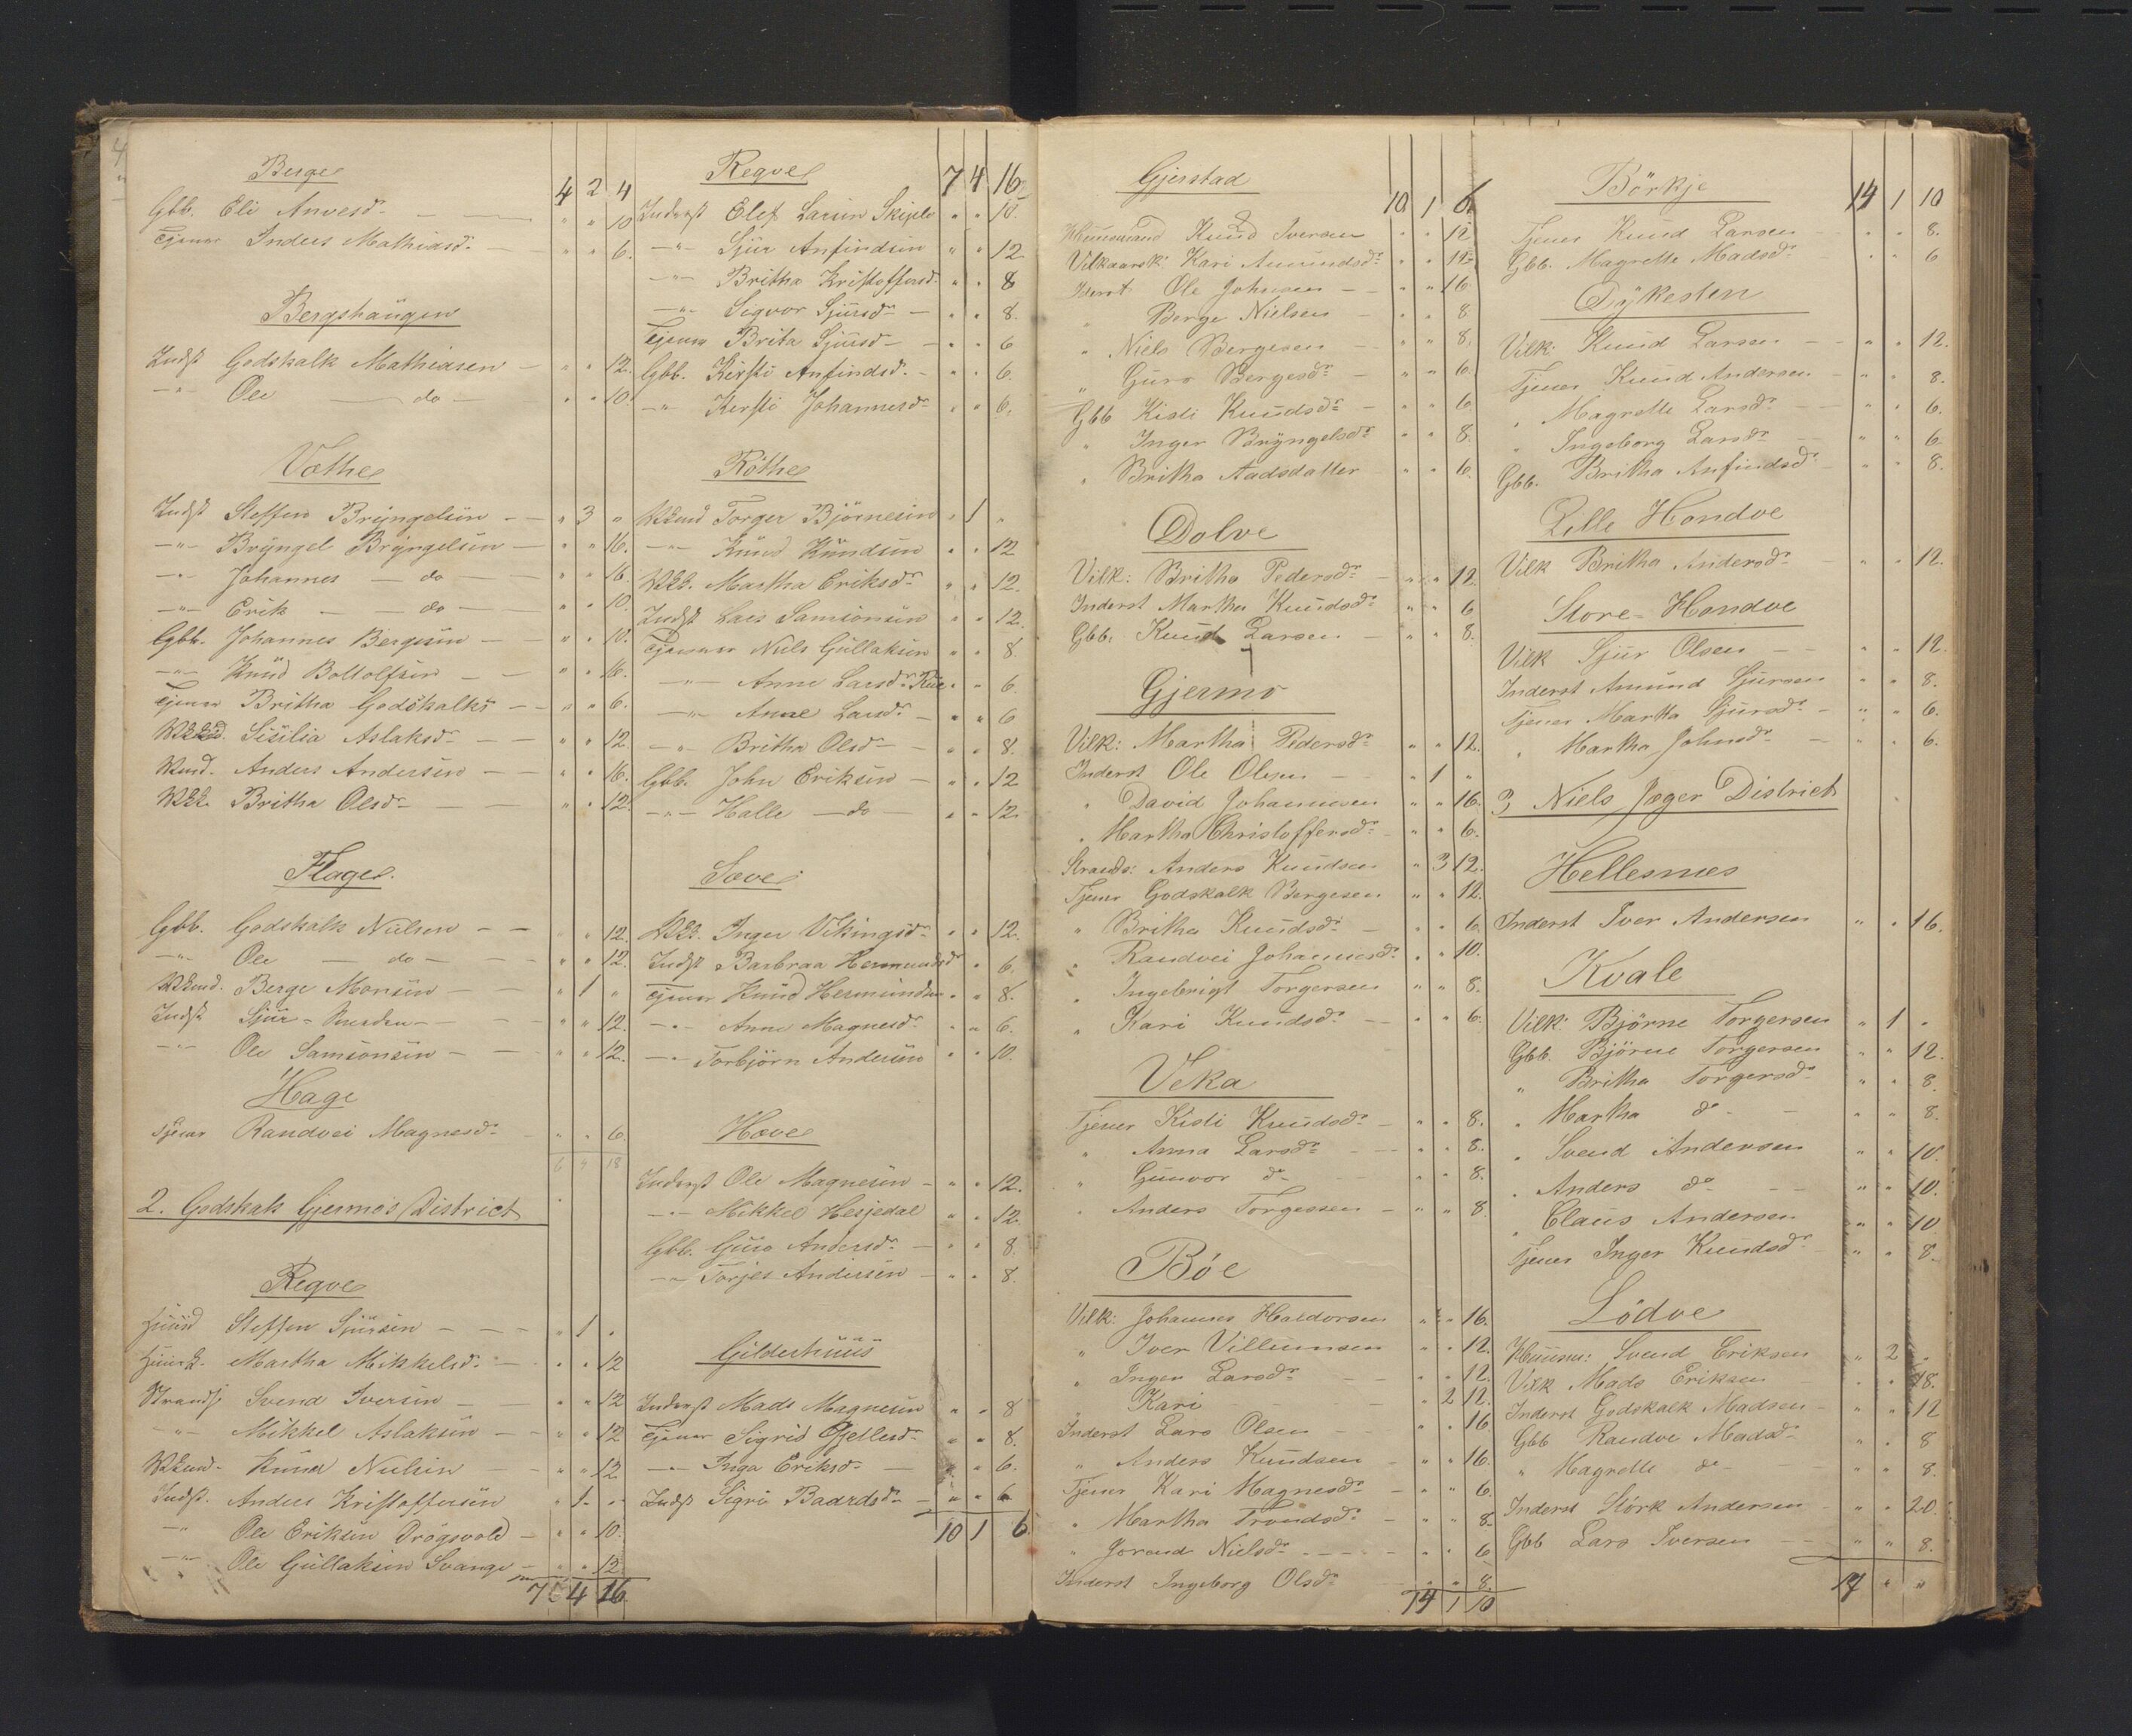 Berge 4 2 4
Gbb. Eli Anvesdr " " 10
Tjener Inders Mathiasdr " " 6.
Bergshaugen
Indst Godskalk Mathiasen " " 12.
-"- Ole do " " 10.
Væthe
Indst Steffen Bryngelsen " 3 "
-"- Bryngel Bryngelsen " " 16.
-"- Johannes do " " 16.
-"- Erik do " " 10.
Gbb. Johannes Bergesen " " 10.
-"- Knud Bottolfsen " " 16.
Tjener Britha Godskalks " " 6.
Sisilia Aslaksdr " " 12.
Anders Andersen " " 16.
Britha Olsdr " " 12.
Flage.
Gbb. Godskalk Nielsen " " 12.
-"- Ole do " " 12.
Berge Monsen " 1 "
Indst Sjur " " 12.
-"- Ole Samsonsen " " 12.
Hage
Tjener Randvei Magnesdr " " 6.
6 " 18
2. Godskalk Gjermos District
Reqve
Steffen Sjursen " 1 "
Martha Mikkelsdr " " 12
Strands Svend Iversen " " 12
-"- Mikkel Aslaksen " " 12
Knud Nielsen " " 12
Indst. Anders Kristoffersen " 1 "
-"- Ole Eriksen Drøgsvold " " 10.
-"- Ole Gullaksen Svange " " 12.
7 4 16
Reqve 7 4 16
Inderst Elef Larsen Skiple " " 10.
-"- Sjur Anfindsen " " 12
-"- Britha Kristoffersd. " " 8
-"- Seqvor Sjursdr " " 8.
Tjener Brita Sjursd " " 6
Gbb. Kirsti Anfindsd. " " 6.
-"- Kersti Johannesdr " " 6.
Røthe
Torger Bjørnesen " 1 "
-"- Knud Knudsen " " 12
Martha Eriksdr " " 12.
Indst Lars Samsonsen " " 12.
Tjener Niels Gullaksen " " 8.
-"- Anne Larsdr " " 6.
-"- Anne Larsdr " " 6
-"- Britha Olsdr " " 8.
Gbb. John Eriksen " " 12
-"- Halle do " " 12.
Sæve
Inger Vikingsdr " " 12.
Indst Barbraa Hermundsd " 6.
Tjener Knud Hermundsen " " 8.
-"- Anne Magnesdr " " 6.
-"- Torbjørn Andersen " " 10.
Hæve
Inderst Ole Magnesen " " 12.
-"- Mikkel Hesjedal " " 12.
Gbb. Guro Andersdr " " 8.
-"- Torjes Andersen " " 8.
Gilderhuus
Inderst Mads Magnesen " " 8
Tjener Sigrid Gjellesdr " " 8.
-"- Inga Eriksdr " " 6.
Indst Sigri Baardsdr " " 6
10 1 6
Gjerstad 10 1 6
Huusmand Knud Iversen " " 12
Vilkaarsk: Kari Amundsdr " " 12
Iderst Ole Johnsen " " 16
" Berge Nielsen " " 8.
" Niels Bergesen " " 8.
" Guro Bergesdr " " 6.
Gbb Kisti Knudsdr " " 6
" Inger Bryngelsdr " " 8.
" Britha Aadsdatter " " 6.
Dolve
Vilk: Britha Pedersdr " " 12.
Inderst Martha Knudsdr " " 6
Gbb. Knud Larsen " " 8.
Gjermo
Vilk: Martha Pedersdr " " 12.
Inderst Ole Olsen " 1 "
" David Johannesen " " 16.
" Martha Christoffersdr " " 6.
Strands: Anders Knudsen " 3 12.
Tjener Godskalk Bergesen " " 12.
" Britha Knudsdr " " 6
" Randvei Johannesdr " " 10.
" Ingebrigt Torgersen " " 8.
" Kari Knudsdr " " 6.
Veka
Tjener Kisti Knudsdr " " 8.
" Anna Larsdr " " 8.
" Gunvor do " " 8.
" Anders Torgersen " " 8.
Bøe
Vilk: Johannes Haldorsen " " 16.
" Iver Villumsen " " 12.
" Inger Larsdr 12.
" Kari " 2 12.
Inderst Lars Olsen " " 16
" Anders Knudsen " " 16.
Tjener Kari Magnesdr " " 6
" Martha Trondsdr " " 8
" Jorand Nielsdr " " 6
Inderst Ingeborg Olsdr " " 8.
14 1 10
Børkje 14 1 10
Tjener Knud Larsen " " 8.
Gbb. Magrette Madsdr " " 6
Dykesten
Vilk: Knud Larsen " " 12.
Tjener Knud Andersen " " 8.
" Magrette Larsdr " " 6.
" Ingeborg Larsdr " " 6.
Gbb. Britha Anfindsdr " " 8.
Lille Hondve
Vilk Britha Andersdr " " 12.
Store-Hondve
Vilk Sjur Olsen " " 12.
Inderst Amund Sjursen " " 8.
Tjener Martha Sjursdr " " 6.
" Martha Johnsdr " " 6.
3 Niels Jæger District
Hellesnæs
Inderst Iver Andersen " " 16.
Kvale
Vilk: Bjørne Torgersen " 1 "
Gbb. Bjørne Torgersen " " 12.
" Britha Torgersdr " " 8.
" Martha do " " 8.
" Svend Andersen " " 10.
" Anders do " " 10.
" Claus Andersen " " 10
Tjener Inger Knudsdr " " 8.
Lødve
Huusm: Svend Eriksen " 2 "
Vilk Mads Eriksen " " 18.
Inderst Godskalk Madsen " " 12
Gbb Randve Madsdr " " 8
" Magrette do " " 8.
Inderst Størk Andersen " " 20.
Gbb Lars Iversen " " 8.
17 " "